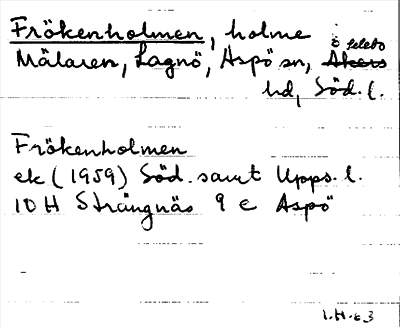 Frökenholmen, holme
Mälaren, Lagnö, Aspö sn, Åkers Selebo
hd, Söd. l.
Frökenholmen
ek (1959) Söd. samt Upps. l.
10 H Strängnäs 9 e Aspö
I.H.63